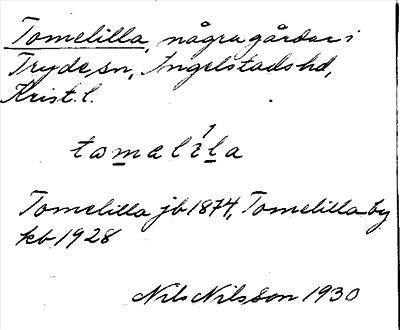 Tomelilla, några gårdar i
Tryde sn, Ingelstads hd,
Krist. l.
tomelíla
Tomelilla jb 1874, Tomelilla by
kb 1928
Nils Nilsson 1930